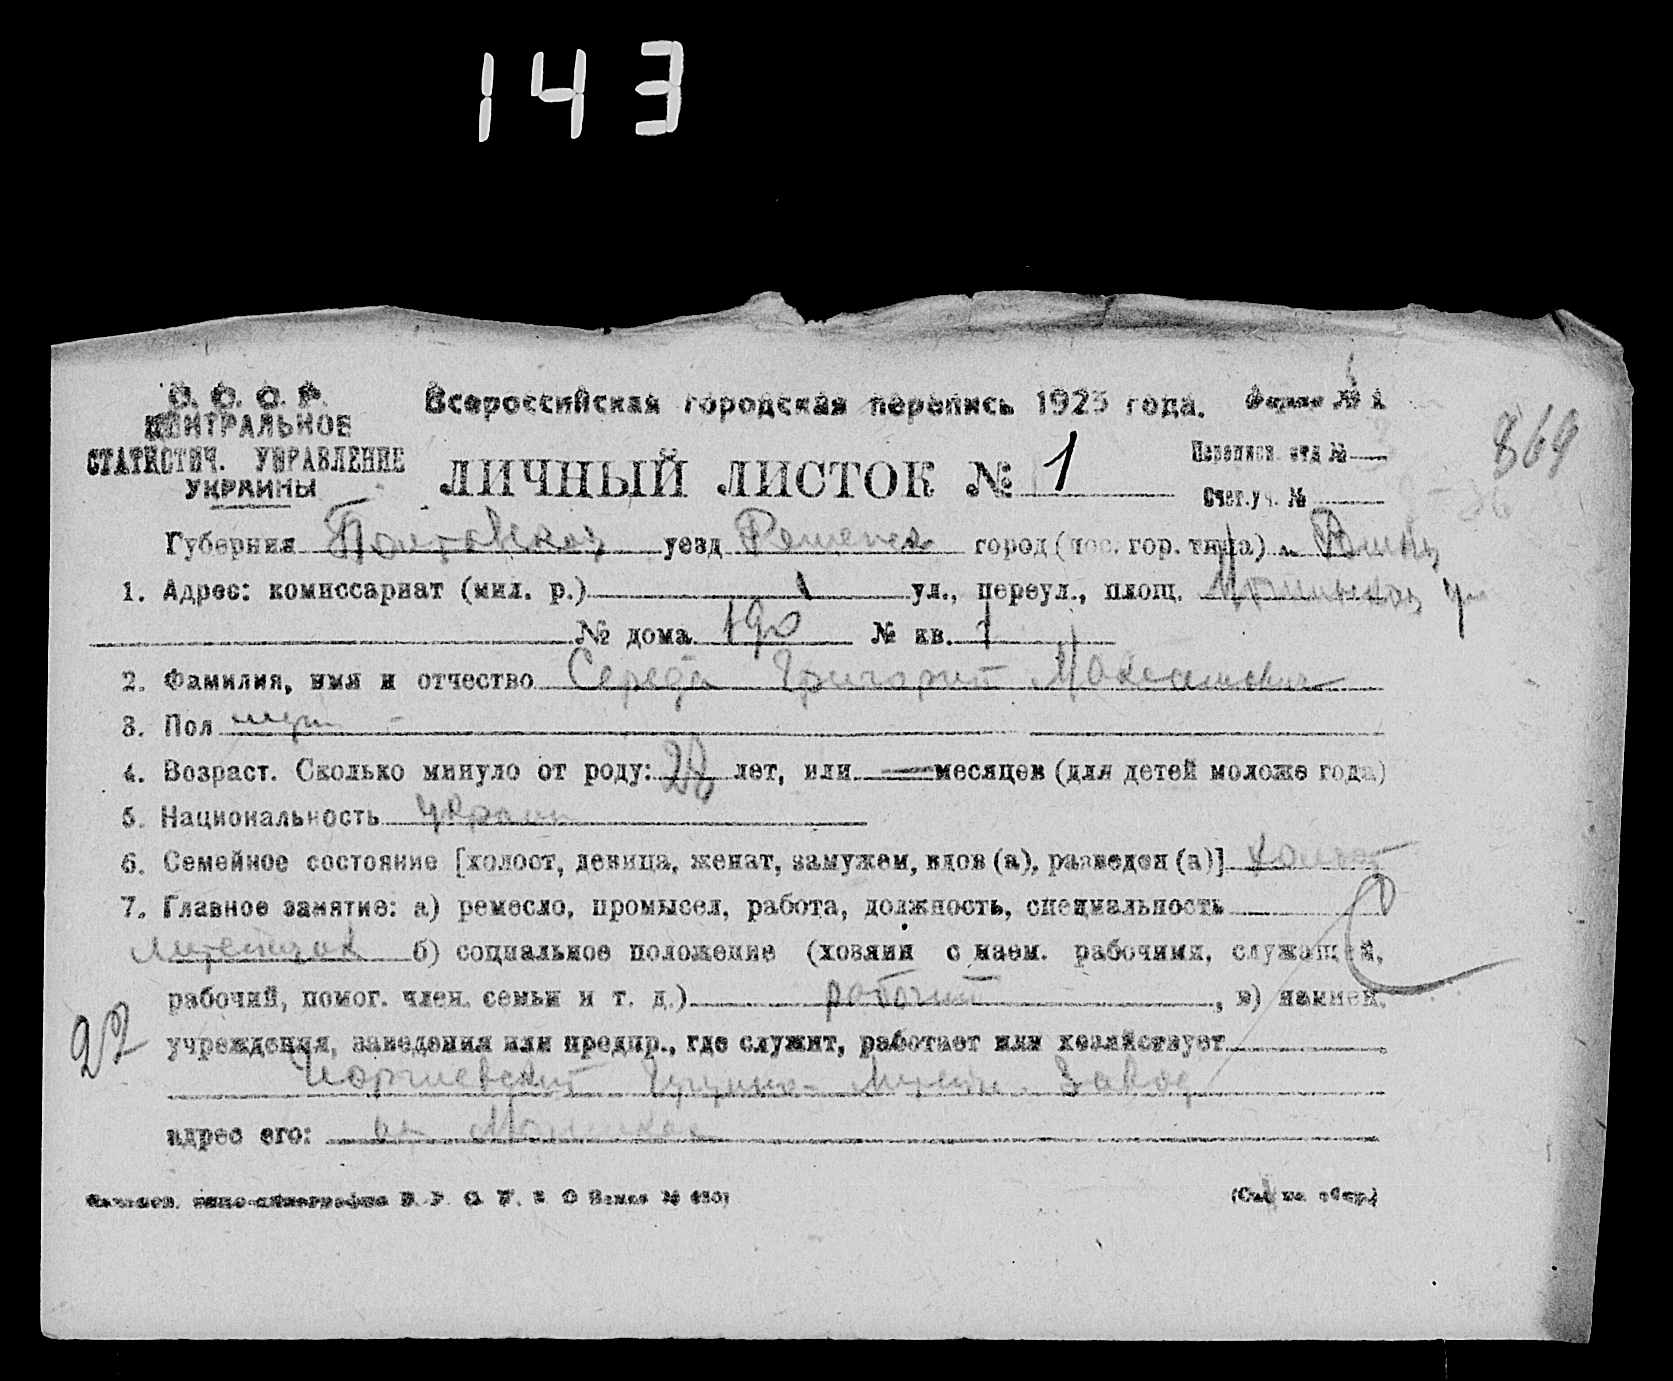 143
С. С. С. Р.
ЦЕНТРАЛЬНОЕ
СТАТИСТИЧ. УПРАВЛЕНИЕ
УКРАИНЫ
Всероссийская городская перепись 1923 года.
Форма № 1
ЛИЧНЫЙ ЛИСТОК № 1
Переписн. отд №
Счет.уч. №
869
Губерния Полтавская уезд город (пос. гор. типа) м.
1. Адрес: комиссариат (мил. р.) ул., переул., площ.
№ дома 190 № кв. 1
2. Фамилия, имя и отчество Середа Григорий Максимович
3. Пол муж
4. Возраст. Сколько минуло от роду: 28 лет, или — месяцев (для детей моложе года)
5. Национальность Украин
6. Семейное состояние [холост, девица, женат, замужем, вдов (а), разведен (а)] холост
7. Главное занятие: а) ремесло, промысел, работа, должность, специальность
Литейщик б) социальное положение (хозяин с наем. рабочими, служащий,
рабочий, помог. член. семьи и т. д.) рабочий, в) наимен.
учреждения, заведения или предпр., где служит, работает или хозяйствует
27
Чугунно-Литейн. Завод
адрес его:
(См. на обор.)